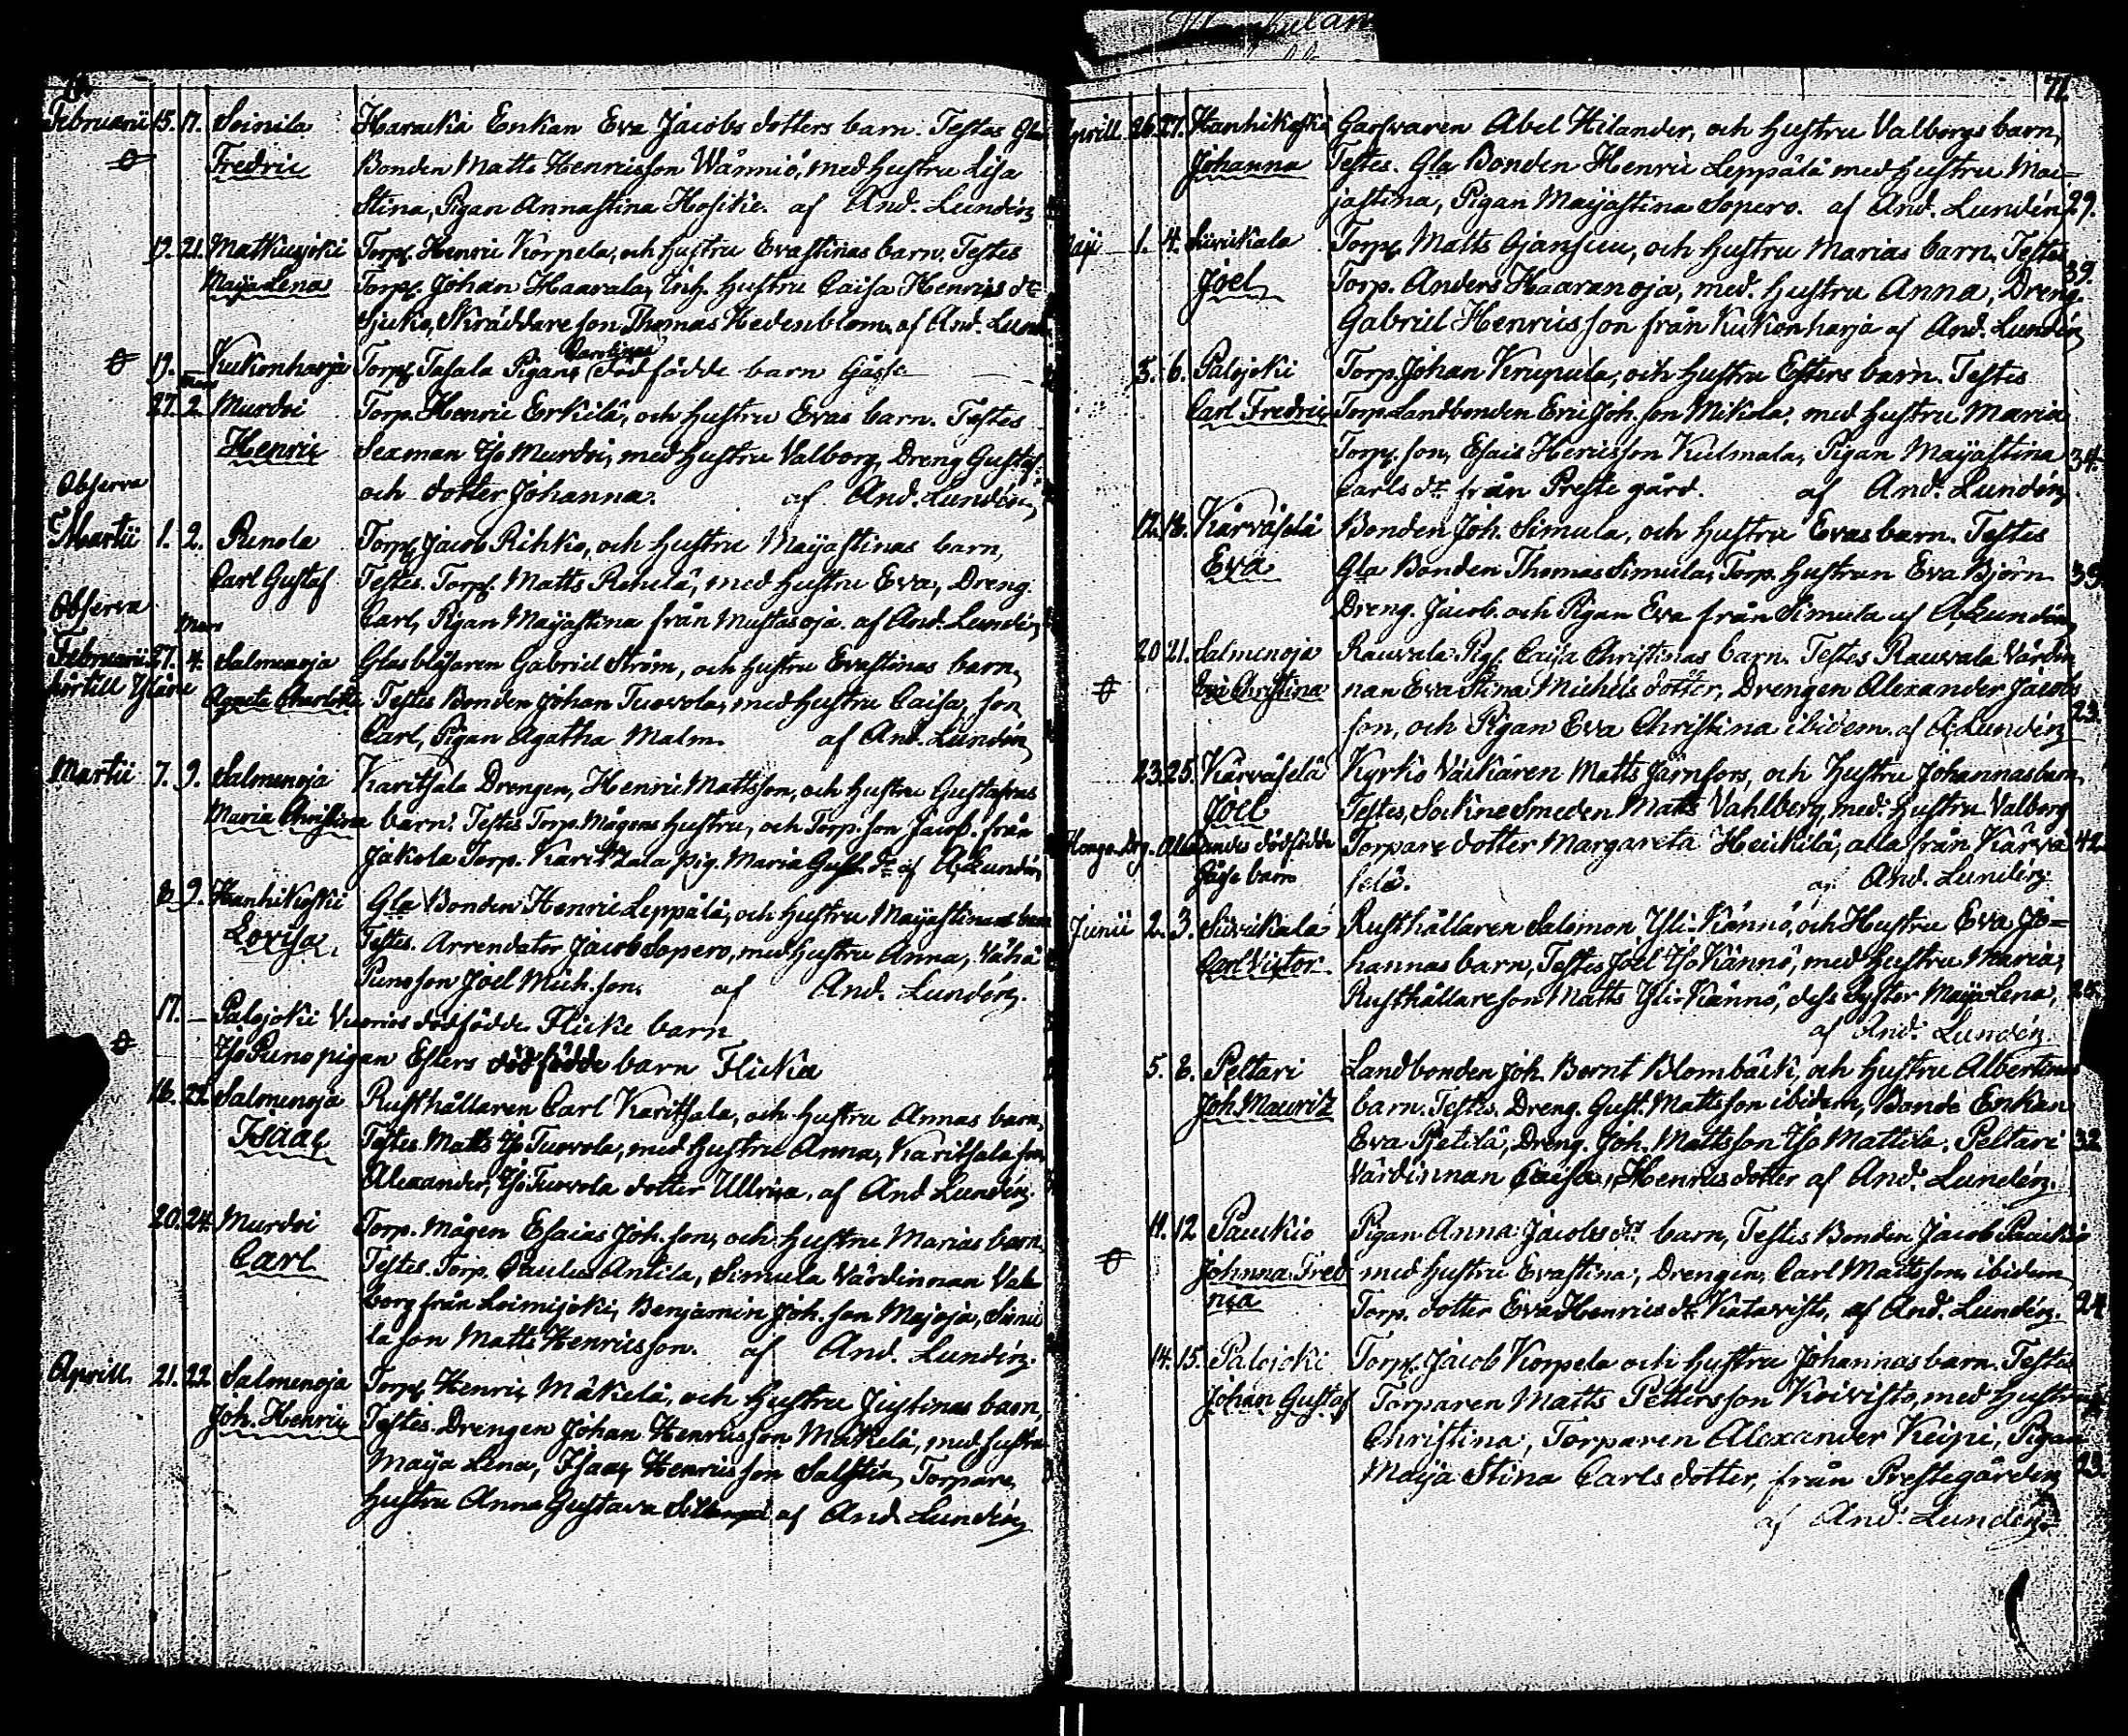 Februarii 15. 17. Soinila Haracka Enkan Eva Jacobs dotters barn. Testes Gla
Fredric Bonden Matts Henricsson Wänniö, med hustru Lisa
Stina, Pigan Annastina Hosike. af And. Lundén
19. 21. Matkusjoki Torp. Henric Korpela, och hustru Evastinas barn. Testes
Maija Lena Torp. Johan Haavala, Inh. hustru Caisa Henrics dr
Sjuko, Skräddare son Thomas Hedenblom. af And. Lund
19. Kukonharja Torp. Tasala Pigans Carolinas död födde barn Gåsse
27. Mars 2. Murdoi Torp. Henric Erkilä, och hustru Evas barn. Testes
Henric Sexman Iso Murdoi, med hustru Valborg, Dreng Gustaf
och dotter Johanna. af And. Lundén
Observa
Martii 1. 2. Punola Torp. Jacob Rihko, och hustru Maijastinas barn,
Carl Gustaf Testes. Torp. Matts Punula, med hustru Eva, Dreng.
Observa Carl, Pigan Maijastina från Mustasoja. af And. Lundén
Februarii 27. Mars 4. Salmenoja Glasblåsaren Gabriel Ström, och hustru Evastinas barn,
hörtill Agneta Charlotta Testes Bonden Johan Tuovola, med hustru Caisa, son
Carl, Pigan Agatha Malm. af And. Lundén
Martii 7. 9. Salmenoja Karitsala Drengen, Henric Mattsson, och hustru Gustafvas
Maria Christina barn. Testes Torp. Mågens hustru, och Torp. son Jacob. från
Jakola Torp. Karitzala pig. Maria Gust. dr af A. Lundén
8. 9. Hanhikoski Gla Bonden Henric Leppälä, och hustru Maijastinas barn
Lovisa. Testes. Arrendator Jacob Sopero, med hustru Anna, Vähä
Puno son Joel Mich. son. af And. Lundén.
17. Palojoki Vuorios dödfödde Flicke barn
Iso Puno pigan Esters dödfödde barn Flicka
16. 22. Salmenoja Rusthållaren Carl Karitsala, och hustru Annas barn,
Isaac Testes. Matts Iso Tuovola, med hustru Anna, Karitsala son
Alexander, Iso Tuovola dotter Ullrica. af And Lundén.
20. 24. Murdoi Torp. Mågen Esaias Joh. son, och hustru Marias barn,
Carl Testes. Torp. Paulus Antila, Simula Värdinnan Val-
borg från Loimijoki, Benjamin Joh. son Majoja, Simu
la son Matts Henricsson. af And. Lundén.
Aprill. 21. 22. Salmenoja Torp. Henric Mäkelä, och hustru Justinas barn,
Joh. Henric Testes. Drengen Johan Henricsson Mäkelä, med hustru
Maija Lena, Isaac Henricsson Salstén, Torpare
hustru Anna Gustava af And. Lundén
71
Aprill. 26. 27. Hanhikoski Garfvaren Abel Hilander, och hustru Valborgs barn,
Johanna Testes. Gla Bonden Henric Leppälä med hustru Mai-
jastina, Pigan Maijastina Sopero. af And. Lundén 29.
Maji 1. 4. Siivikala Torp. Matts Ojansuu, och hustru Marias barn. Testes
Joel Torp. Anders Haaranoja, med hustru Anna, Dreng. 39.
Gabriel Henricsson från Kukonharja af And. Lundén
5. 6. Palojoki Torp. Johan Krupula, och hustru Esters barn. Testes
Carl Fredric Torp. Landbonden Eric Joh. son Mikola, med hustru Maria
Torp. son, Esais Henricsson Kulmala, Pigan Maijastina 34.
Carls dr från Preste gård. af And. Lundén
12. 18. Kärväselä Bonden Joh. Simula, och hustru Evas barn. Testes
Eva Gla Bonden Thomas Simula, Torp. hustrun Eva Björn 39.
Dreng. Jacob. och Pigan Eva från Simula af A. Lundén
20 21. Salmenoja Rauvala Pig. Caisa Christinas barn. Testes Rauvala Värdin
Eva Christina nan Eva Stina Michels dotter, Drengen Alexander Jacobs
son, och Pigan Eva Christina ibidem. af A. Lundén 23.
23. 25. Kärväselä Kyrko Väcktaren Matts Järnfors, och hustru Johannas barn,
Joel Testes, Sockne Smeden Matts Vahlberg, med hustru Valborg
dödfödde Torpare dotter Margareta Heickilä, alla från Kärvä 42.
Gåsse barn selä. af And. Lundén.
Junii 2. 3. Siivikala Rusthållaren Salomon Yli-Kännö, och Hustru Eva Jo-
Carl Victor hannas barn, Testes Joel Iso Kännö, med hustru Maria,
Rusthållare son Matts Yli-Kännö, dess Syster Maija Lena,
af And. Lundén.
5. 8. Peltari Landbonden Joh. Bernt Blombäck, och hustru Albertinas
Joh. Mauritz barn. Testes. Dreng. Gust. Mattsson ibidem, Bonde Enkan
Eva Pietilä, Dreng. Joh. Mattsson Iso Mattila. Peltari 32
Värdinnan Caisa Henricsdotter af And. Lundén.
11. 12 Pauckio Pigan Anna Jacobs drs barn, Testes Bonden Jacob Pauckio
Johanna Fred med hustru Evastina, Drengen, Carl Mattsson ibidem
rica Torp. dotter Eva Henrics dr Katavisto, af And. Lundén. 24
14. 15. Palojoki Torp. Jacob Korpela och hustru Johannas barn. Testes
Johan Gustaf Torparen Matts Pettersson Koivisto, med hustru
Christina, Torparen Alexander Keipi, Pigan
Maija Stina Carls dotter, från Prestegården 23.
af And. Lundén.